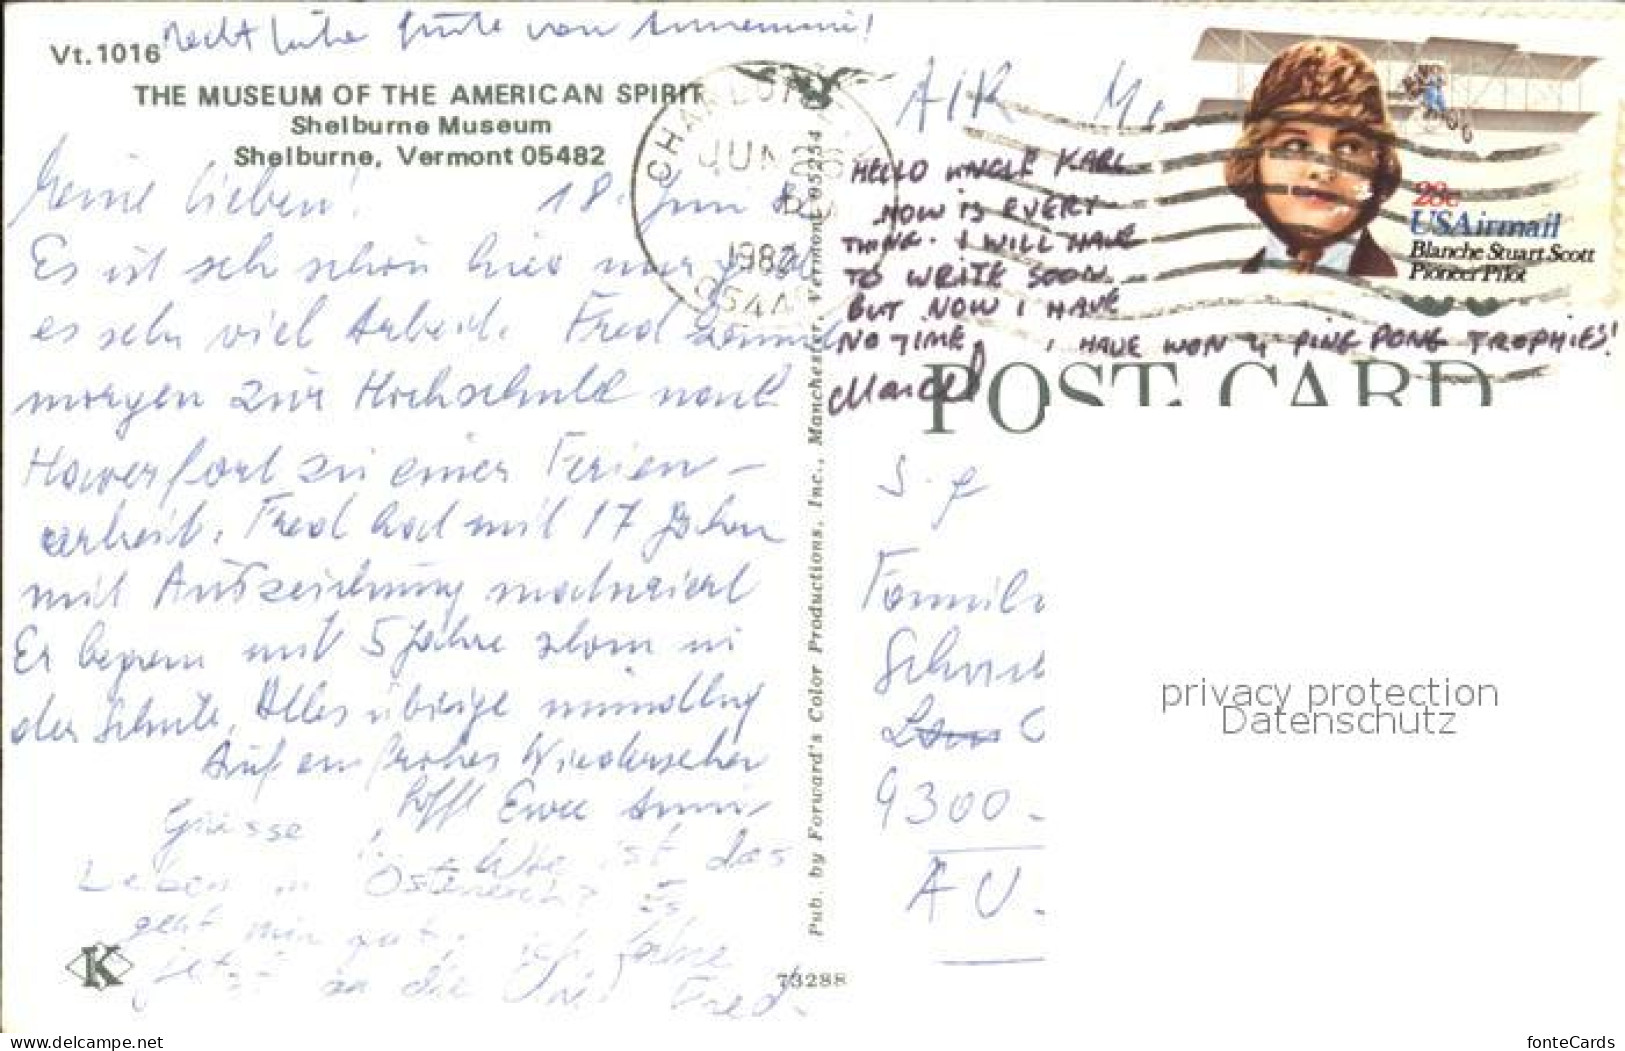 Recht liebe Grüße von Annemarie!
Vt.1016
THE MUSEUM OF THE AMERICAN SPIRIT
Shelburne Museum
Shelburne, Vermont 05482
Meine Lieben! 18. Juni
Es ist sehr schön hier nur
es sehr viel Arbeit. Fred kommt
morgen zur Hochschule nach
Haverfort zu einer Ferien-
arbeit. Fred hat mit 17 Jahren
mit Auszeichnung maturiert
Er begann mit 5 Jahre schon in
der Schule. Alles übrige mündlich
Auf ein frohes Wiedersehen
hofft Eure Anni
Grüsse, Wie ist das
Leben in Österreich? Es
geht mir gut, ich fahre
jetzt zu die Uni Fred.
K
73288
Pub. by Forward's Color Productions, Inc., Manchester, Vermont 05254
CHARLOTTE
JUN
1982
AIR
HELLO UNCLE KARL
HOW IS EVERY
THING. I WILL HAVE
TO WRITE SOON.
BUT NOW I HAVE
NO TIME, I HAVE WON 4 PING PONG TROPHIES!
Marcel
28c
USAirmail
Blanche Stuart Scott
Pioneer Pilot
POST CARD
S. g
Famili
9300
AU
privacy protection
Datenschutz
www.delcampe.net
fonteCards